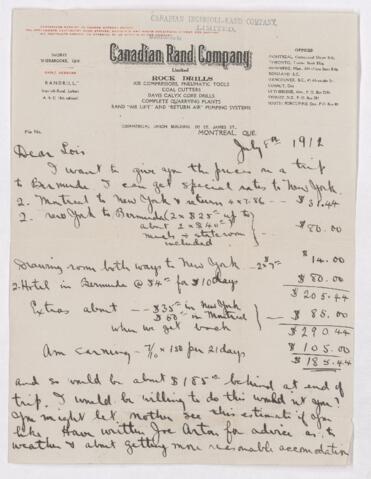 CANADIAN INGERSOLL-RAND COMPANY,
LIMITED.
WORKS
SHERBROOKE, QUE.
"RANDRILL"
Canadian Rand Company
Limited
ROCK DRILLS
AIR COMPRESSORS, PNEUMATIC TOOLS
COAL CUTTERS
DAVIS CALYX CORE DRILLS
COMPLETE QUARRYING PLANTS
RAND "AIR LIFT" AND "RETURN AIR" PUMPING SYSTEMS
OFFICES
COMMERCIAL UNION BUILDING, ST. JAMES ST.,
MONTREAL, QUE.
File No.
July 8th 1912
Dear Lois
I want to give you the prices on a trip
to Bermuda. I can get special rates to New York.
2. Montreal to New York & return 4 x 7.86 — $31.44
2. New York to Bermuda 2 x $25 up to
about 2 x $40
meals & stateroom
included
— $80.00
Drawing room both ways to New York — 2 @ 7 $14.00
2. Hotel in Bermuda @ $4 for 10 days $80.00
$205.44
Extras about — $35 in New York
$50 in Montreal
when we get back
— $85.00
$290.44
Am earning — 7/10 x 150 per 21 days $105.00
$185.44
and so would be about $185 behind at end of
trip. I would be willing to do this would not you?
You might let mother see this estimate if you
like. Have written Joe Arton for advice as to
weather & about getting more reasonable accomodation